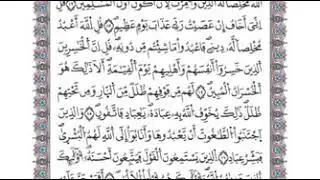 مُخْلِصًا لَّهُ ٱلدِّينَ ۝ وَأُمِرْتُ لِأَنْ أَكُونَ أَوَّلَ ٱلْمُسْلِمِينَ ۝ قُلْ
إِنِّىٓ أَخَافُ إِنْ عَصَيْتُ رَبِّى عَذَابَ يَوْمٍ عَظِيمٍ ۝ قُلِ ٱللَّهَ أَعْبُدُ
مُخْلِصًا لَّهُۥ دِينِى ۝ فَٱعْبُدُوا۟ مَا شِئْتُم مِّن دُونِهِۦ ۗ قُلْ إِنَّ ٱلْخَٰسِرِينَ
ٱلَّذِينَ خَسِرُوٓا۟ أَنفُسَهُمْ وَأَهْلِيهِمْ يَوْمَ ٱلْقِيَٰمَةِ ۗ أَلَا ذَٰلِكَ هُوَ
ٱلْخُسْرَانُ ٱلْمُبِينُ ۝ لَهُم مِّن فَوْقِهِمْ ظُلَلٌ مِّنَ ٱلنَّارِ وَمِن تَحْتِهِمْ
ظُلَلٌ ۚ ذَٰلِكَ يُخَوِّفُ ٱللَّهُ بِهِۦ عِبَادَهُۥ ۚ يَٰعِبَادِ فَٱتَّقُونِ ۝ وَٱلَّذِينَ
ٱجْتَنَبُوا۟ ٱلطَّٰغُوتَ أَن يَعْبُدُوهَا وَأَنَابُوٓا۟ إِلَى ٱللَّهِ لَهُمُ ٱلْبُشْرَىٰ ۚ
فَبَشِّرْ عِبَادِ ۝ ٱلَّذِينَ يَسْتَمِعُونَ ٱلْقَوْلَ فَيَتَّبِعُونَ أَحْسَنَهُۥٓ ۚ أُو۟لَٰٓئِكَ